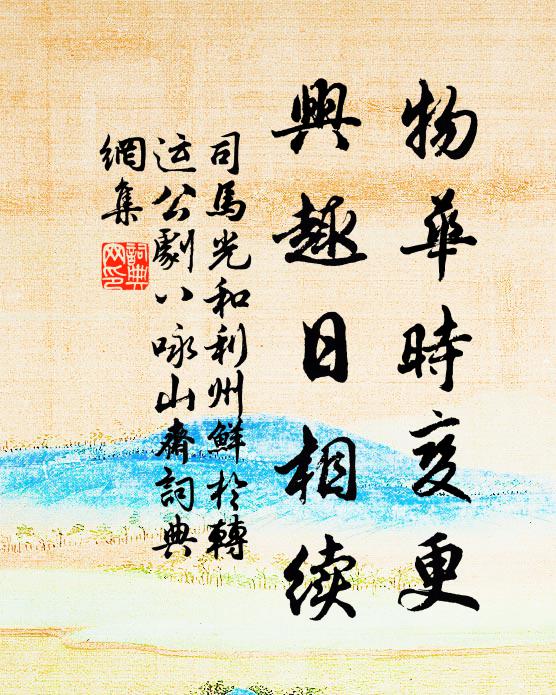 物華時变更
興趣日相续
司馬光和利州鮮於轉
运公劇八咏山齋詞典
網集
詞典
网印